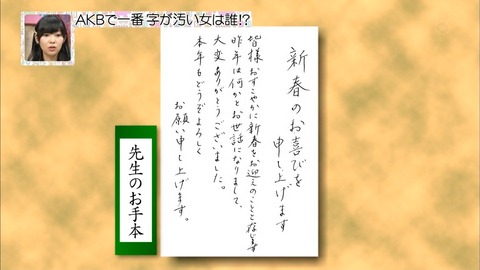 AKBで一番 字が汚い女は誰!?
新春のお喜びを
申し上げます
皆様おすこやかに新春をお迎えのことと存じます
昨年は何かとお世話になりまして、
大変ありがとうございました。
本年もどうぞよろしく
お願い申し上げます。
先生のお手本